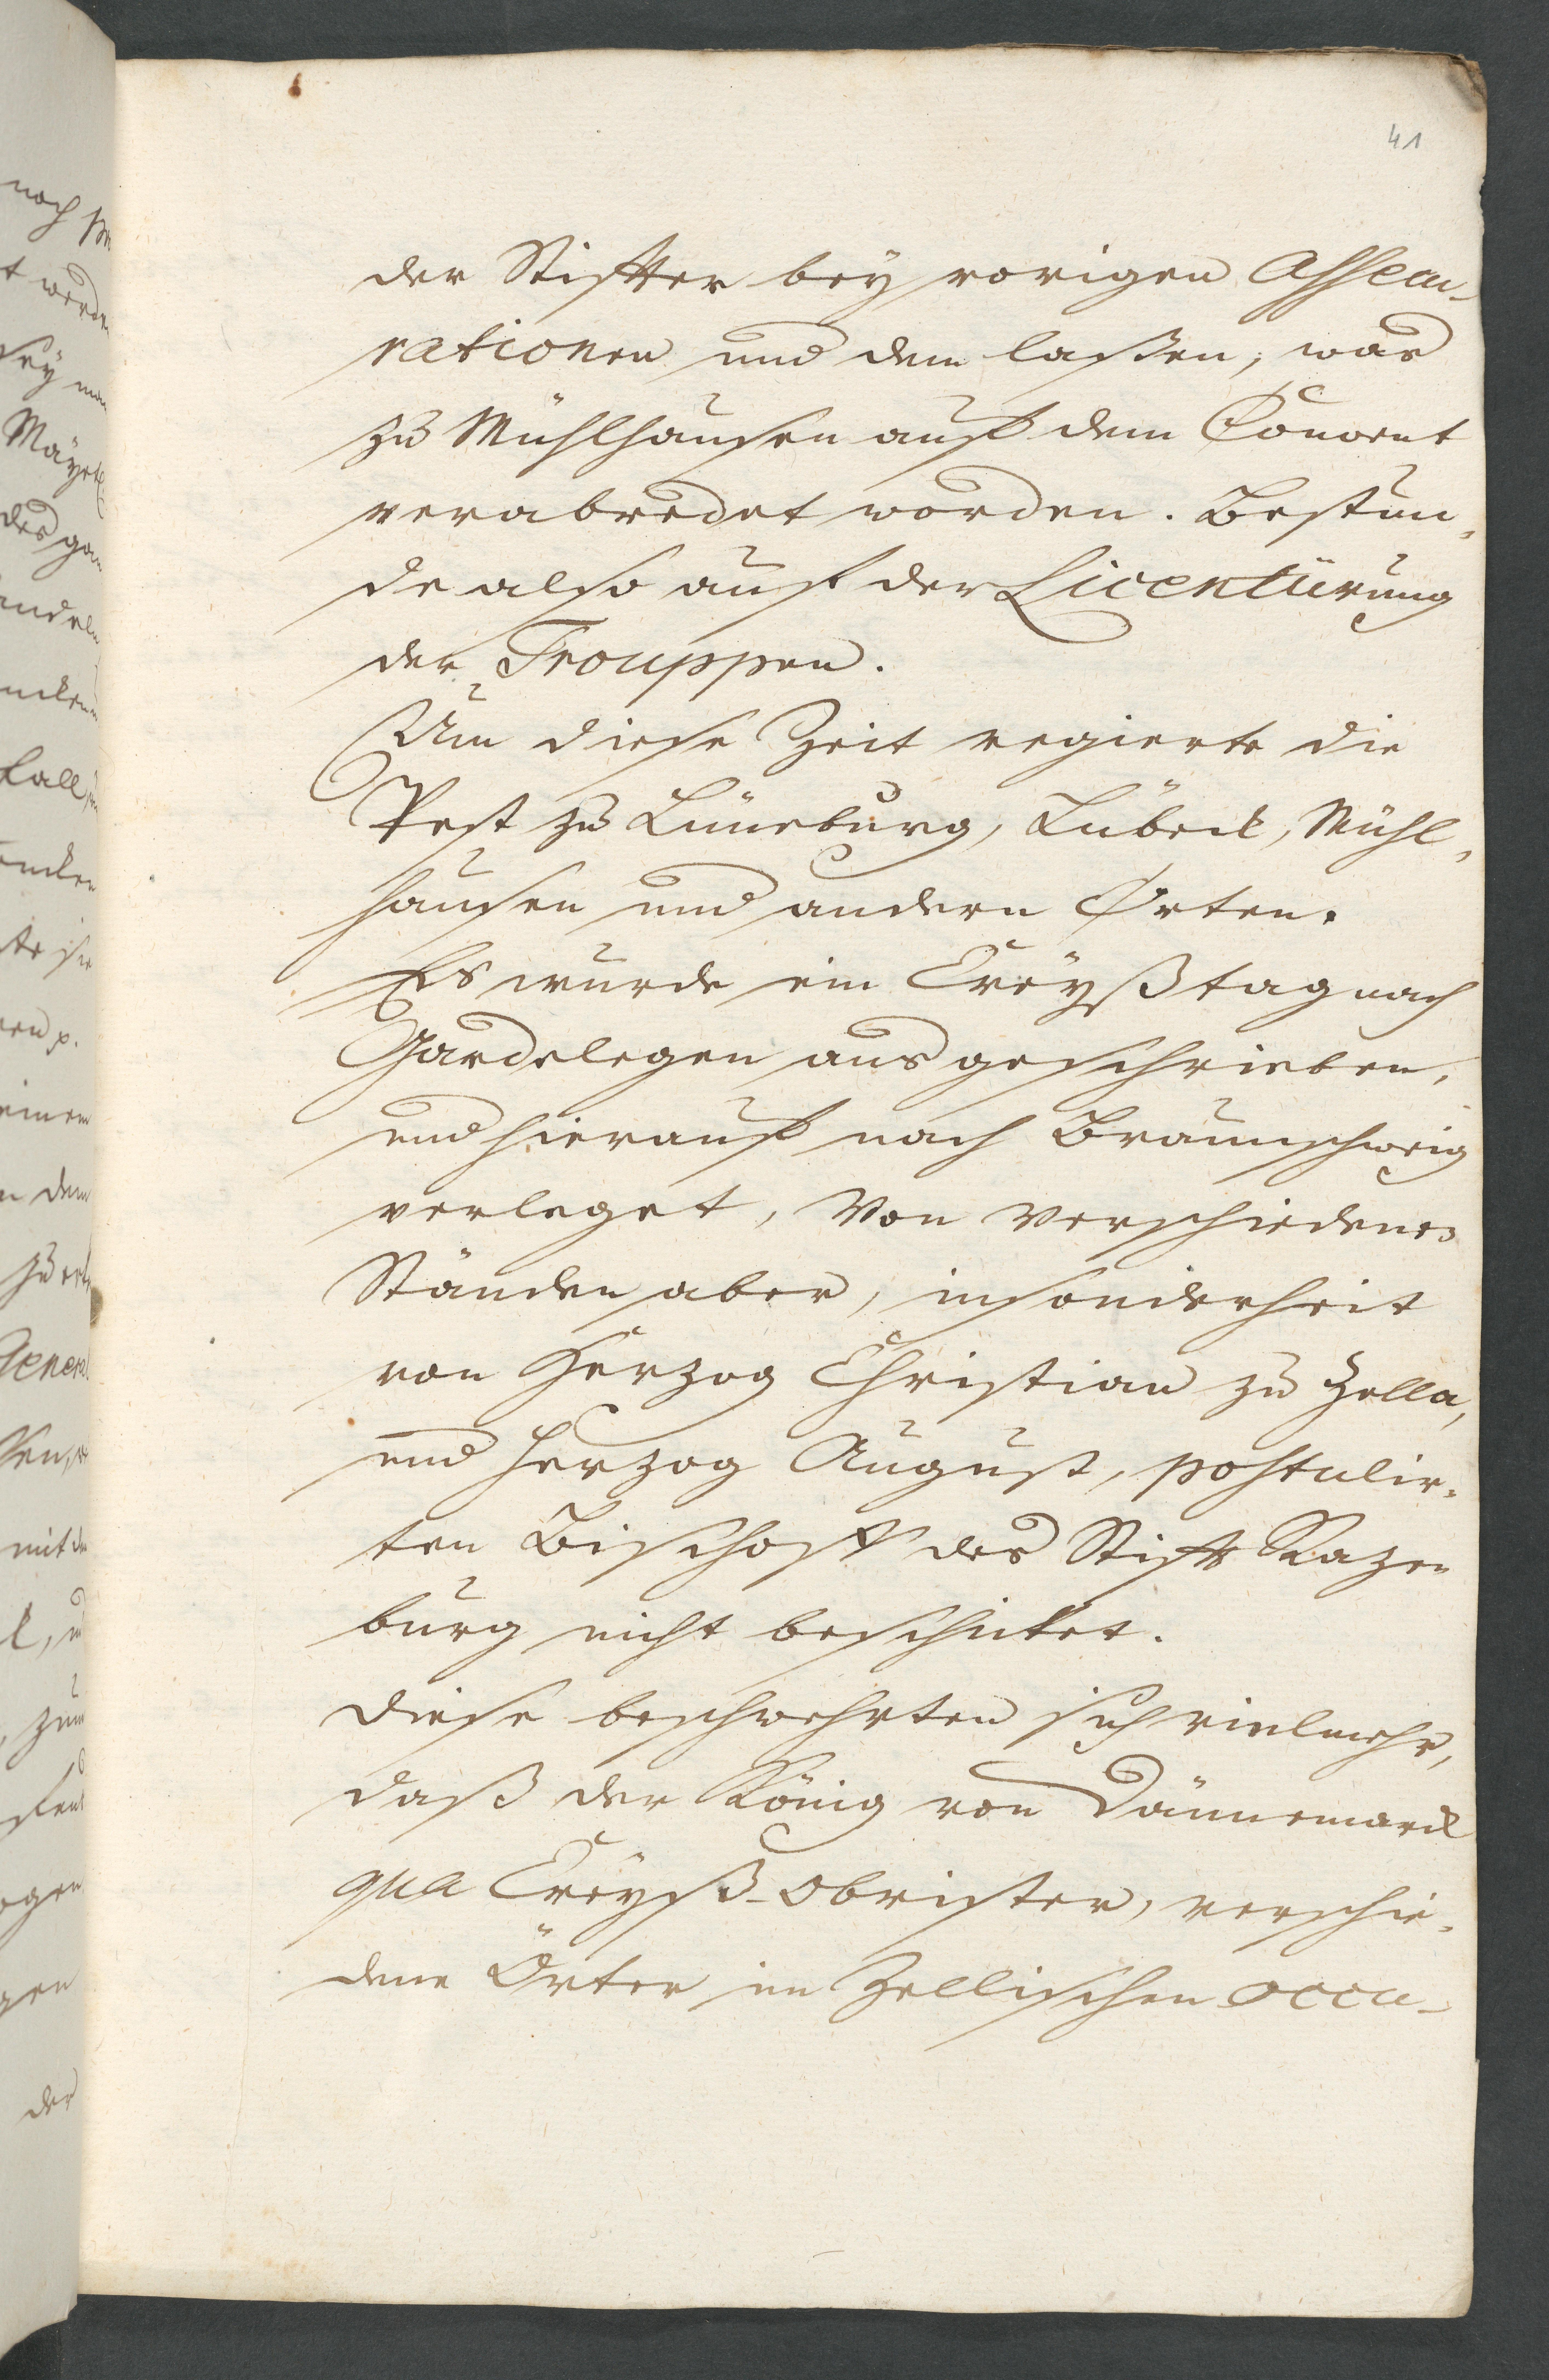 41
der Stiffter bey vorigen Assecu-
rationen und dem laßen, was
zu Mühlhausen auff dem Convent
verabredet worden. Bestün-
de also auff der Licentiirung
der Trouppen.
Um diese Zeit regierte die
Pest zu Lüneburg, Lübeck, Mühl-
hausen und andern Orten.
Es wurde ein Creyßtag nach
Gardelegen ausgeschrieben,
und hierauff nach Braunschweig
verleget, Von Verschiedenen
Ständen aber, insonderheit
von Herzog Christian zu Zella,
und Herzog August, postulir-
ten Bischoff des Stiffts Razen
burg nicht beschicket.
Diese beschwehrten sich vielmehr,
daß der König von Dännemarck
qua Creyß-Obrister, verschie-
dene Örter im Zellischen occu-